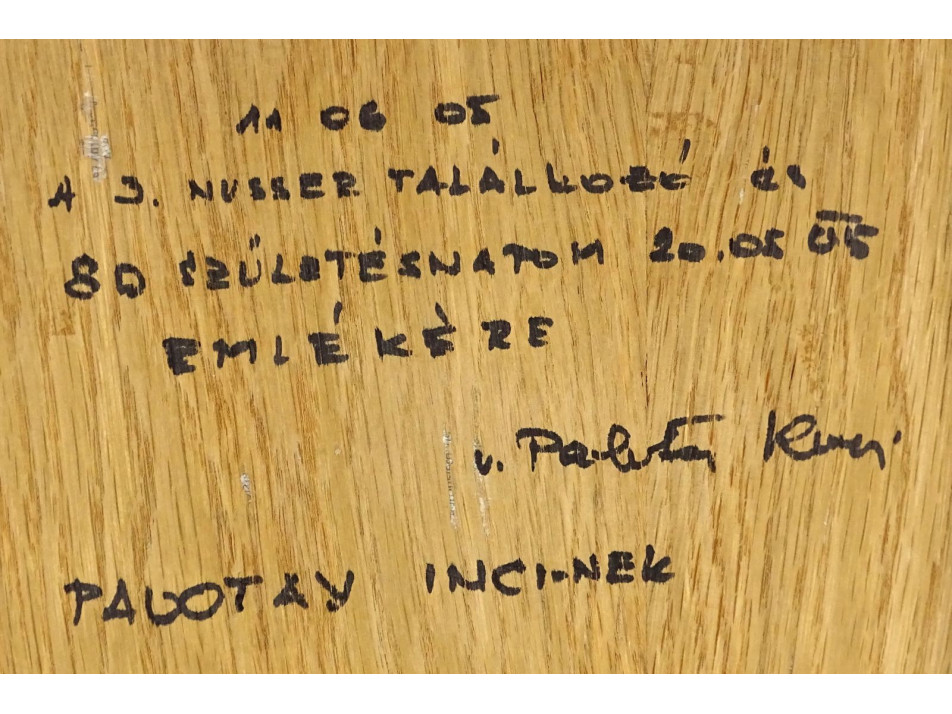 11 06 05
A J. NUSSER TALÁLKOZÓ és
80 SZÜLETÉSNAPOM 20.05 05
EMLÉKÉRE
v. Palotay
PALOTAY INCI-NEK